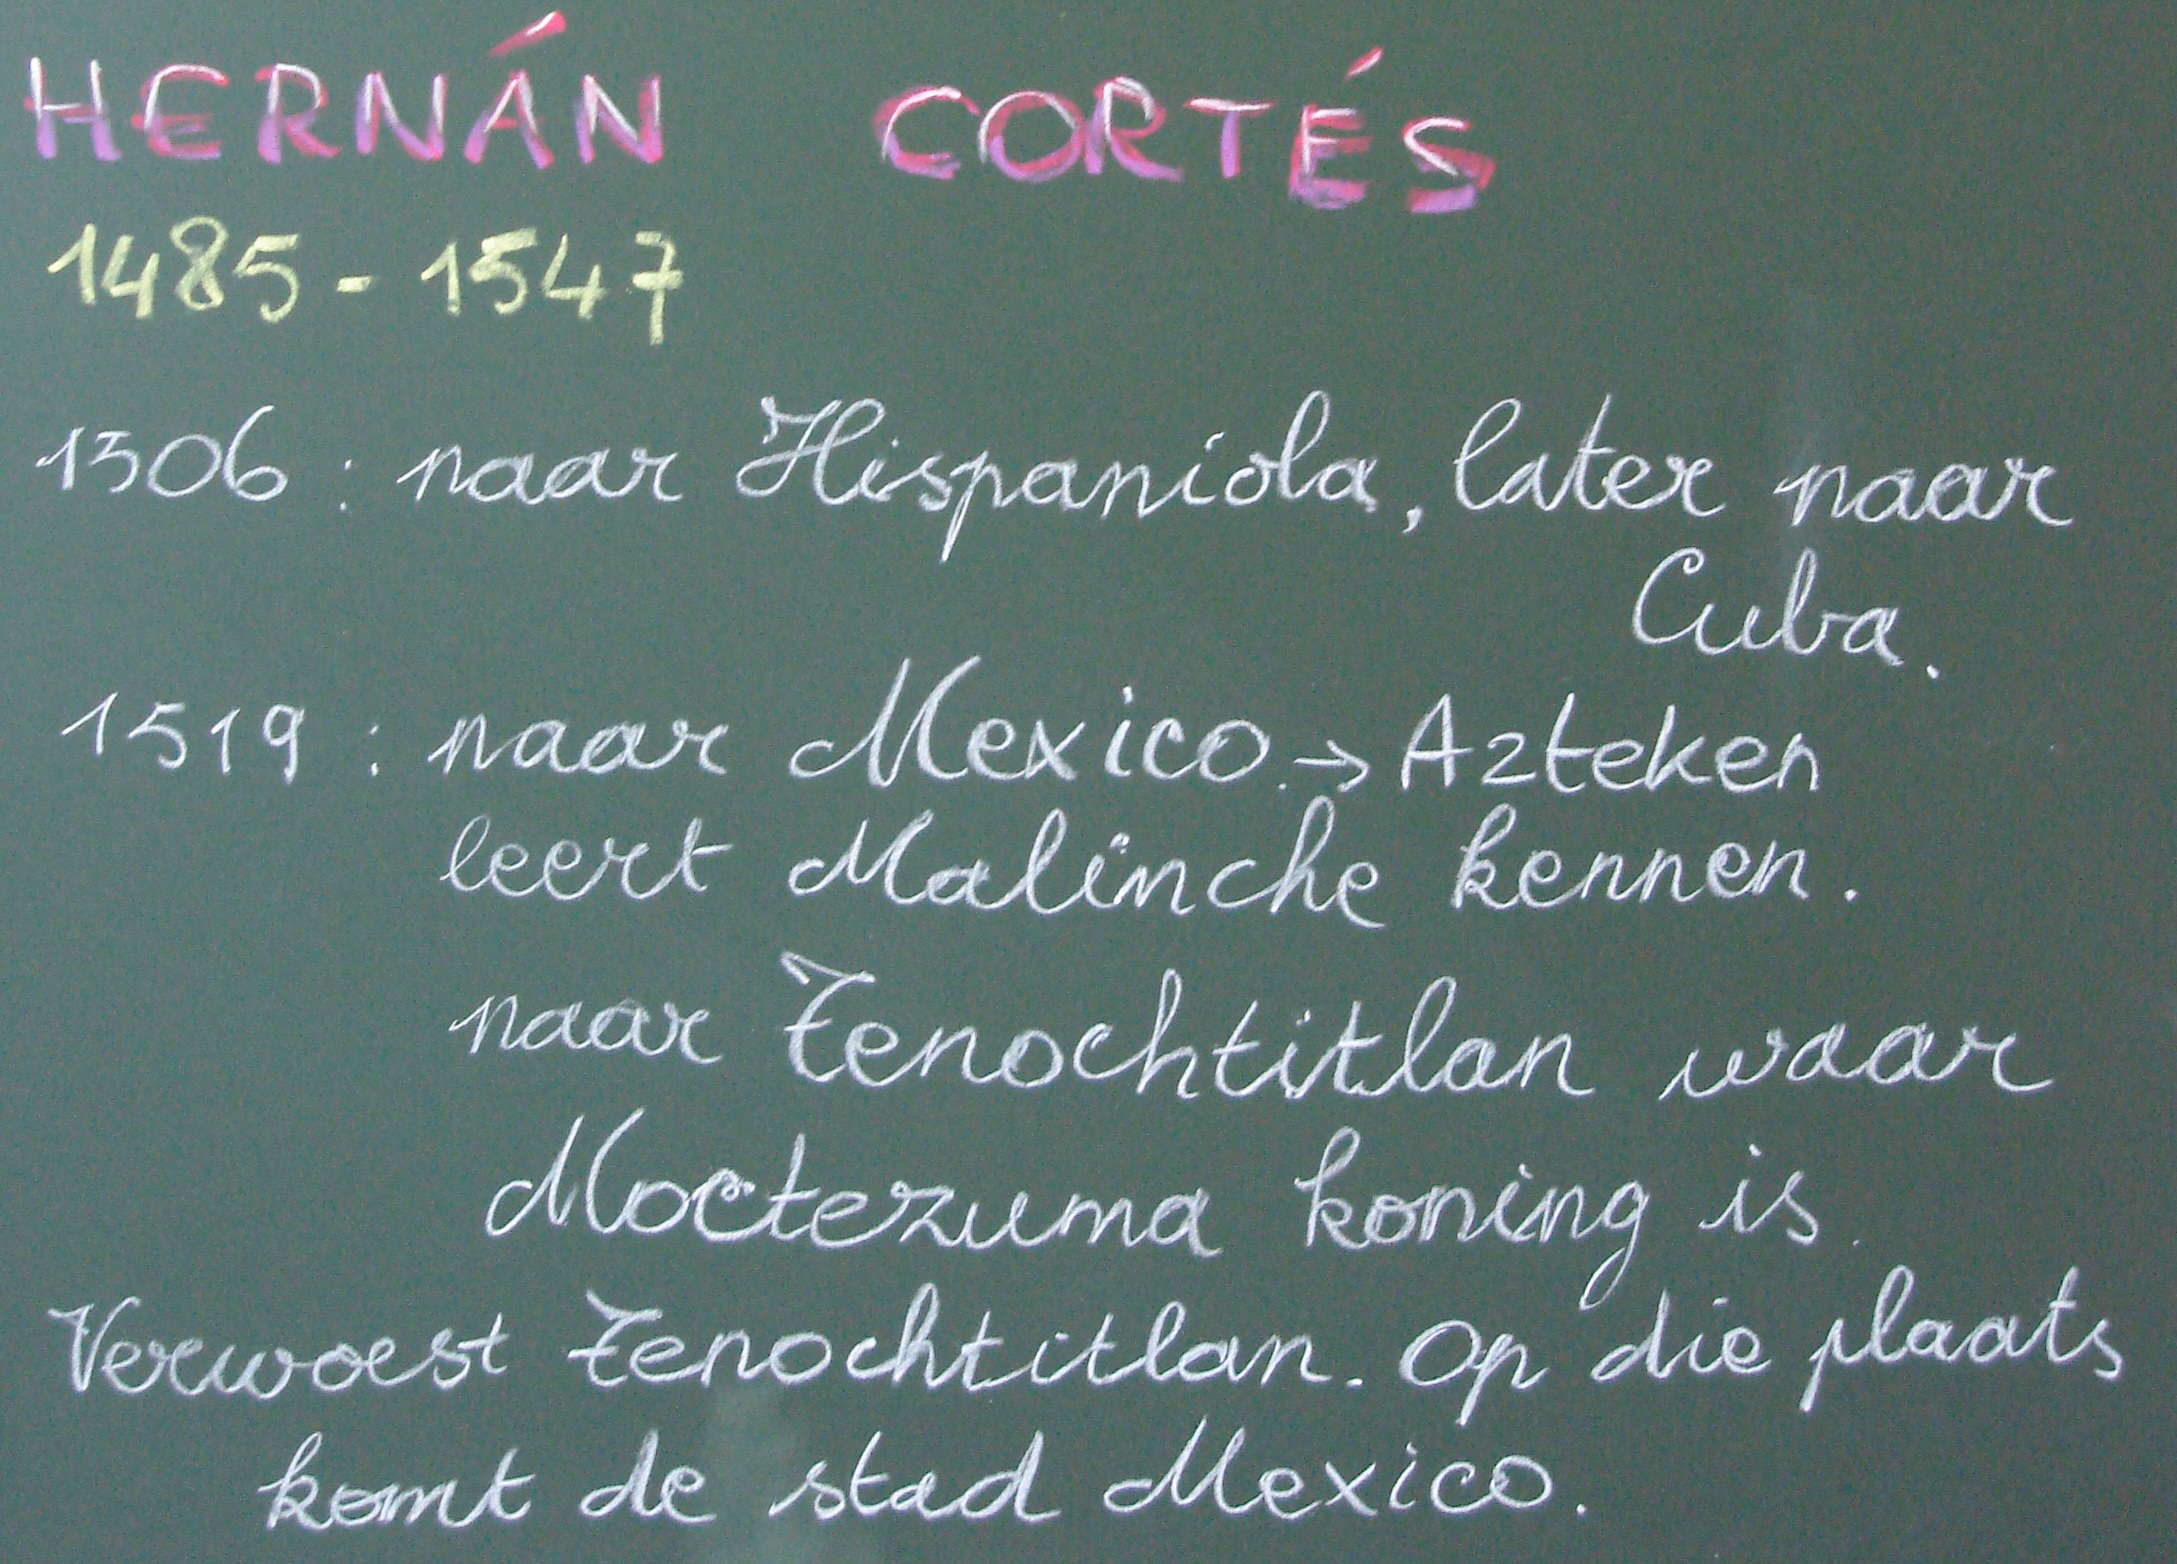 HERNÁN CORTÉS
1485 - 1547
1506 : naar Hispaniola, later naar
Cuba.
1519 : naar Mexico. → Azteken
leert Malinche kennen.
naar Tenochtitlan waar
Moctezuma koning is.
Verwoest Tenochtitlan. Op die plaats
komt de stad Mexico.